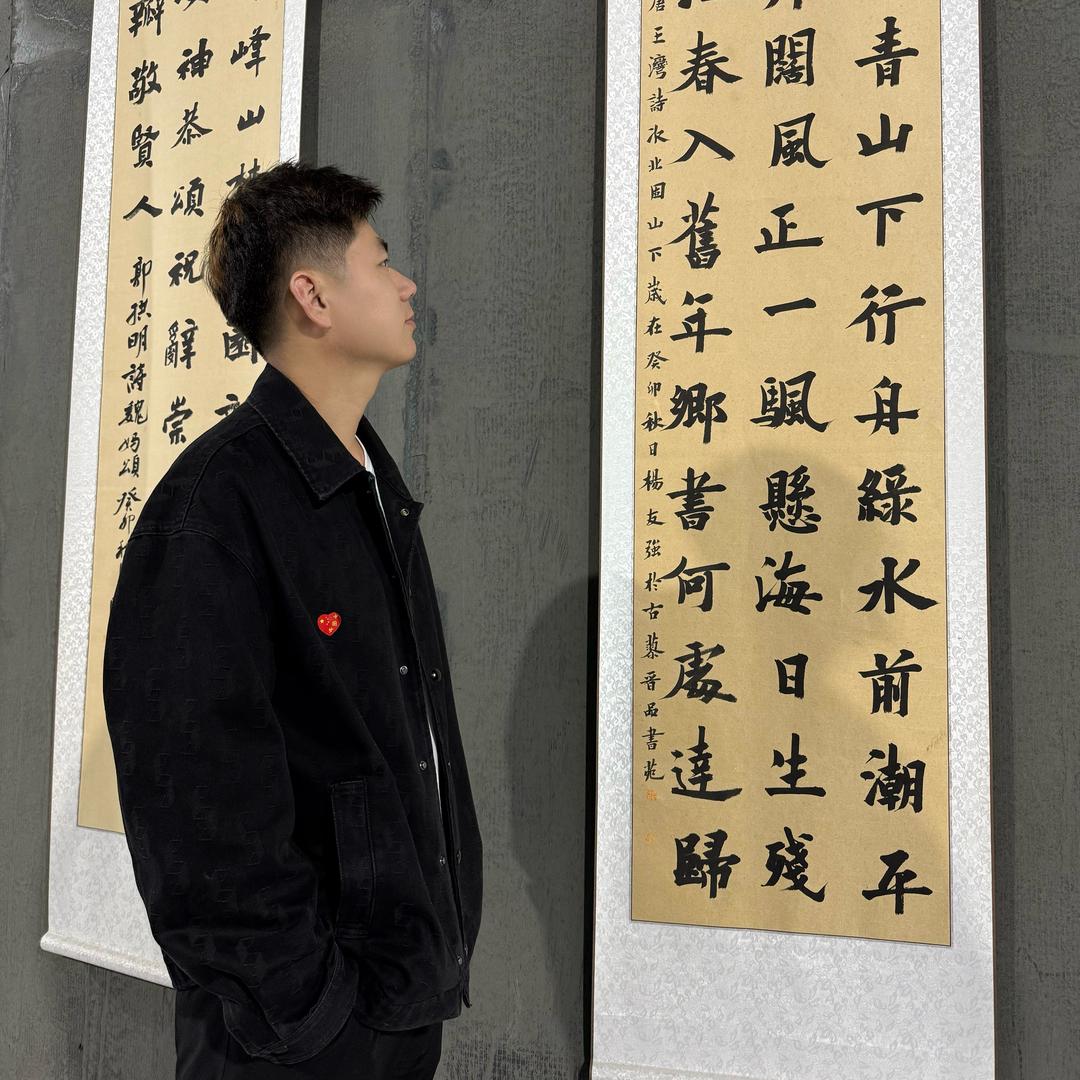 青山下行舟綠水前潮平
闊風正一颿懸海日生殘
春入舊年鄉書何處達歸
唐王灣詩次北固山下歲在癸卯秋日楊友強於古晉品書苑
峰山
神恭頌祝辭崇
瓣敬賢人
郭明詩魏頌癸卯